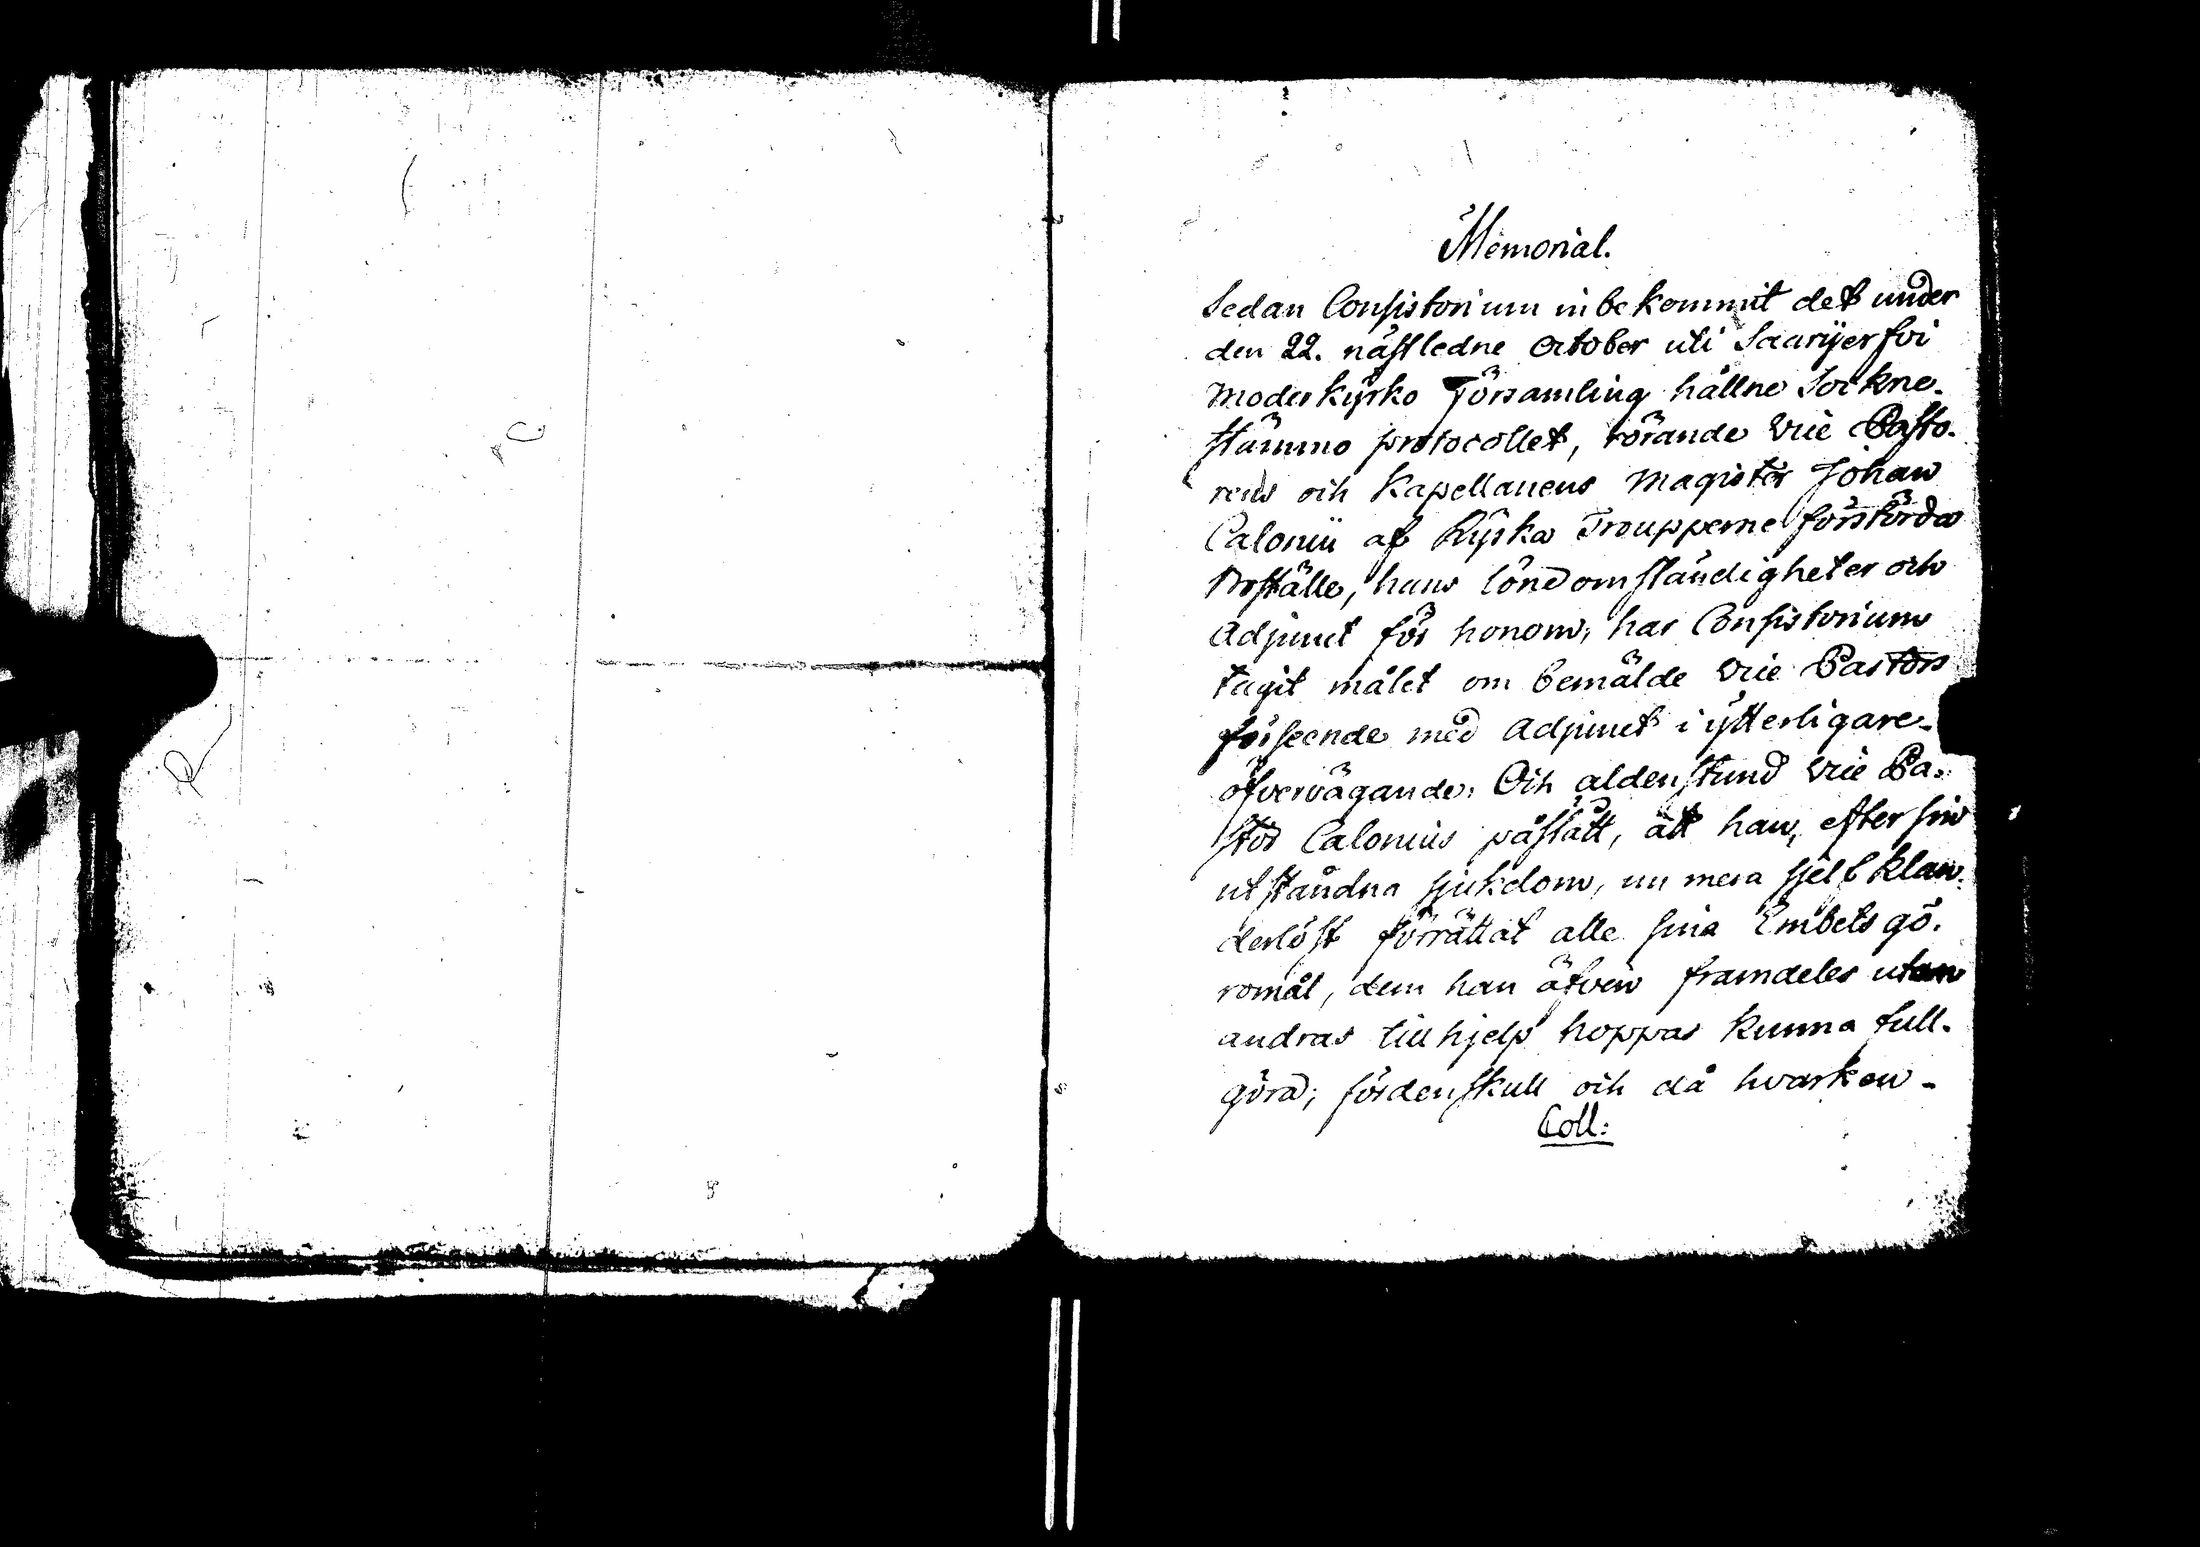 Memorial.
Sedan Consistorium inbekommit det under
den 22. nästledne October uti Saarijerfvi
Moderkyrko Församling hållne Sockne-
stämmo protocollet, rörande Vice Pasto-
rens och Kapellanens Magister Johan
Calonii af Ryska Troupperne förstörda
Boställe, hans löneomständigheter och
Adjunct för honom, har Consistorium
tagit målet om bemälde Vice Pastors
förseende med Adjunct i ytterligare
öfvervägande. Och aldenstund Vice Pa-
stor Calonius påstått, att han, efter sin
utståndna sjukdom, nu mera sjelf klan-
derlöst förrättat alle sina Embets gö-
romål, dem han äfven framdeles utan
andras tillhjelp hoppas kunna full-
göra; fördenskull och då hvarken -
Coll: